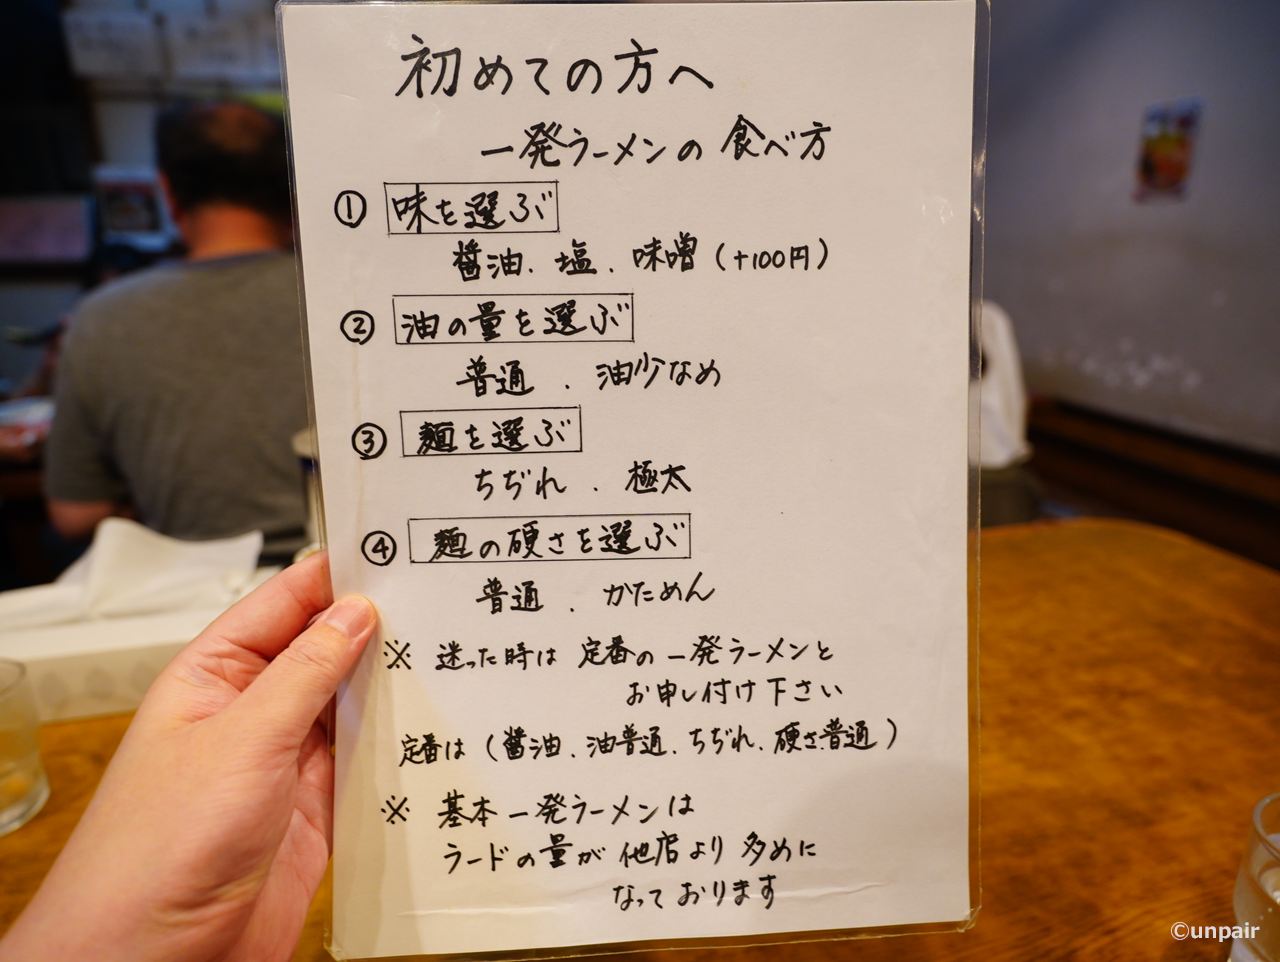 初めての方へ
一発ラーメンの食べ方
① 味を選ぶ
醤油、塩、味噌(+100円)
② 油の量を選ぶ
普通、油少なめ
③ 麺を選ぶ
ちぢれ、極太
④ 麺の硬さを選ぶ
普通、かためん
※ 迷った時は定番の一発ラーメンと
お申し付け下さい
定番は(醤油、油普通、ちぢれ、硬さ普通)
※ 基本一発ラーメンは
ラードの量が他店より多めに
なっております
©unpair